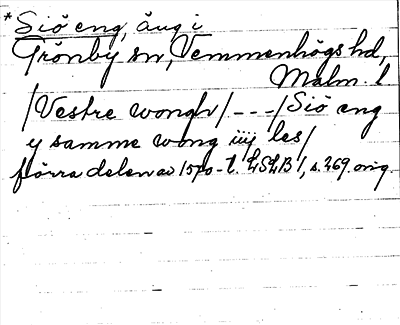 *Siö eng, äng i
Grönby sn, Vemmenhögs hd,
Malm. l
/Vestre wongh/---/Siö eng
y samme wong iiij les/
förra delen av 1570-t. LSLB 1, s. 269. orig.